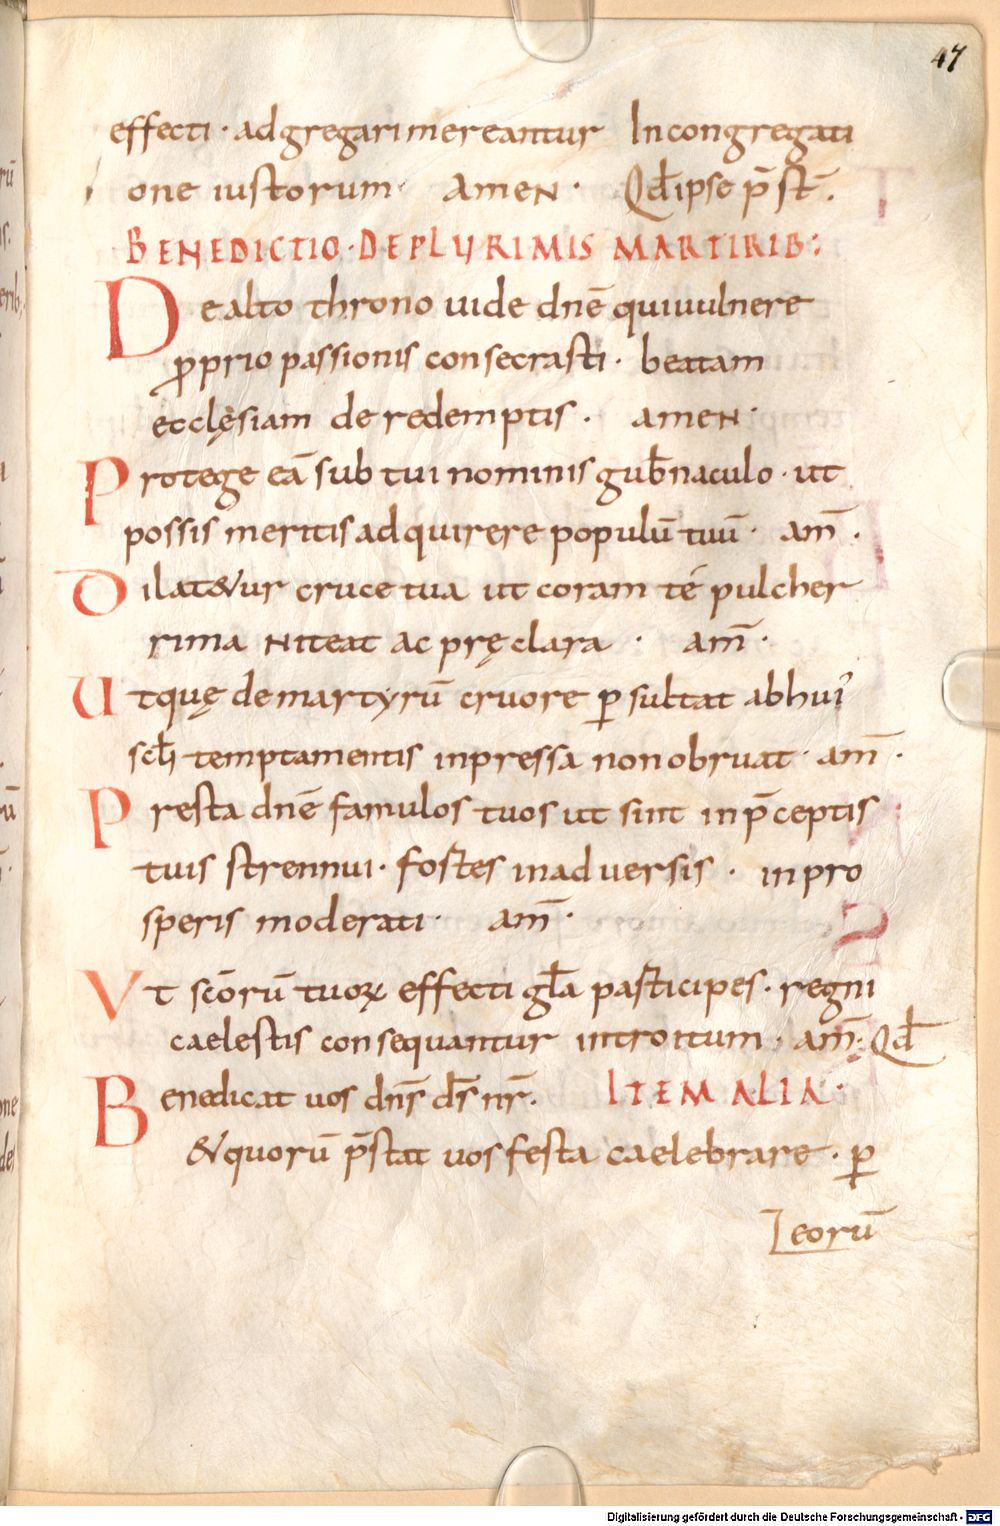 47
effecti · adgregari mereantur In congregati
one iustorum · amen · Qd̄ ipse p̄st̄.
BENEDICTIO · DE PLURIMIS MARTIRIB:
De alto throno uide dn̄e qui uulnere
ꝓprio passionis consecrasti · beatam
ecclęsiam de redemptis · amen ·
Protege eā sub tui nominis gub̄naculo · ut
possis meritis adquirere populū tuū · am̄ ·
Dilat&ur cruce tua ut coram té pulcher
rima niteat ac pręclara · am̄ ·
Utquę de martyrū cruore ꝑsultat ab hui᾽
sc̄li temptamentis inpressa non obruat · am̄ ·
Presta dn̄e famulos tuos ut sint in p̄ceptis
tuis strennui · fostes in aduersis · in pro
speris moderati · am̄ ·
Vt sc̄orū tuoꝝ effecti gl̄a pasticipes · regni
caelestis consequantur introitum · am̄ · Qd̄
Benedicat uos dn̄s d̄s nr̄. ITEM ALIA ·
& quorū p̄stat uos festa caelebrare · ꝑ
eorū
Digitalisierung gefördert durch die Deutsche Forschungsgemeinschaft - DFG